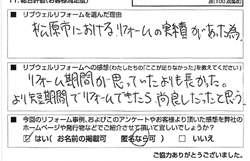 ●リブウェルリフォームを選んだ理由
松原市におけるリフォームの実績があった為。
●リブウェルリフォームへの感想(わたしたちの「ここが足りなかった」を教えてください)
リフォーム期間が思っていたよりも長かった。
より短期間でリフォームできたら尚良しだったと思う。
●今回のリフォーム事例、およびこのアンケートやお客様より頂いた感想を弊社の
ホームページや発行物などでご紹介させて頂いて宜しいでしょうか?
はい(お名前の掲載可 匿名なら可) いいえ
ご協力ありがとうございました。